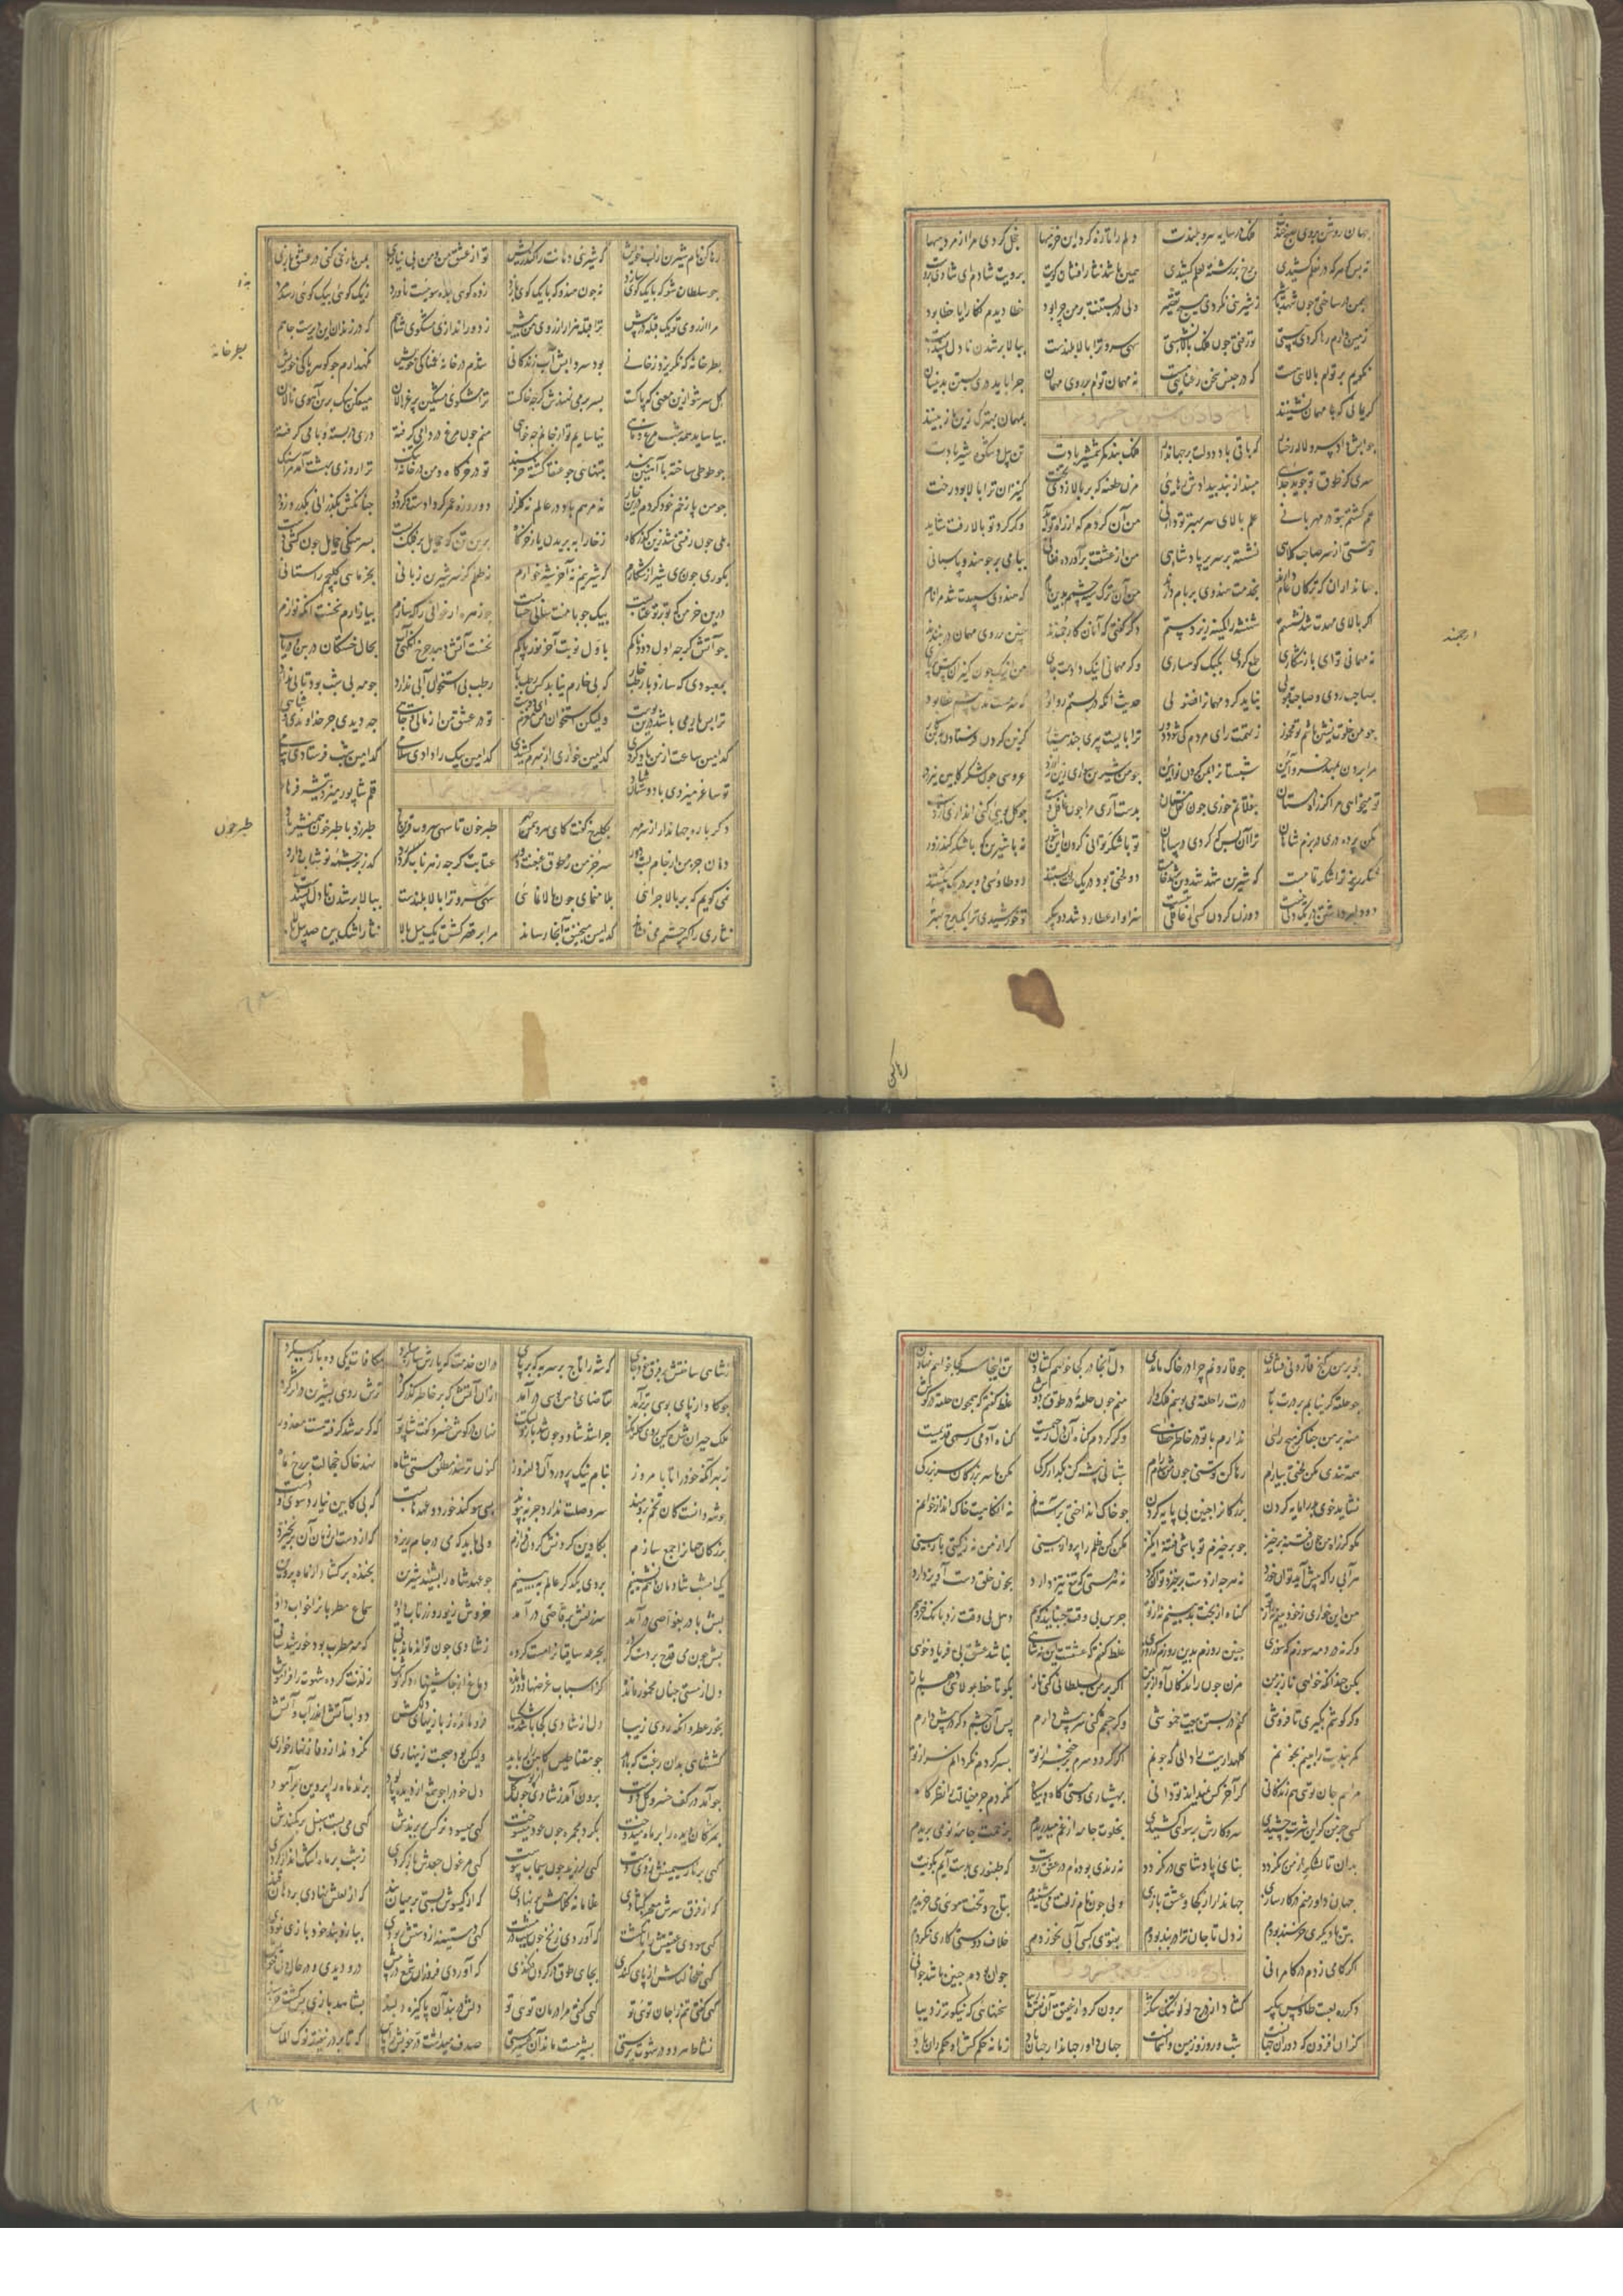 جهان روشن بروی صبح خندت فلک در سایه سرو بلندت دلم را تازه کرد این خرمیها خجل کردی مرا از مردمیها
ز بس گوهر که در نعلم کشیدی رخ بر رشته لعلم کشیدی همین باشد نثار افشان کویت برویت شادم ای شادی برویت
بمن در ساختی چون شهد با شیر ز شیرینی نکردی هیچ تقصیر ولی در بستنت بر من چرا بود خطا دیدم نگارا یا خطا بود
زمین وارم رها کردی بپستی تو رفتی چون فلک بالا نشستی سهی سرو ترا بالا بلندست ببالاتر شدن نادلپسندست
نگویم بر توام بالایی هست که در جنس سخن رعنایی هست نه مهمان توام بر روی مهمان چرا باید دری بستن بدینسان
کریمانی که با مهمان نشینند بمهمان بهترک زین باز بینند
پاسخ دادن شیرین خسرو را
جوابش داد سرو لاله رخسار که باقی باد دولت بر جهاندار فلک بند کمر شمشیر بادت تن پیل و شکوه شیر بادت
سری کز طوق تو جوید جدایی مباد از بند بیدادش رهایی مزن طعنه که بر بالا زدی تخت کنیزان ترا بالا بود رخت
علم گشتم بتو در مهربانی علم بالای سر بهتر تو دانی من آن گردم که از راه تو آید وگر گرد تو بالا رفت شاید
تو هستی از سر صاحب کلاهی نشسته بر سریر پادشاهی من از عشقت برآورده فغانی ببامی بر چو هندو پاسبانی
جهانداران که ترکان عام دارند بخدمت هندوی بر بام دارند من آن ترک سیه چشمم بدین بام که هندوی سپیدت شد مرا نام
اگر بالای مهدت شد نشستم شهنشه را کمینه زیر دستم دگر گفتی که آنان کارجمندند چنین بر روی مهمان در نبندند
نه مهمانی توای باز شکاری طمع کردی بکبک کوهساری وگر مهمانی اینک دادمت جای من اینک چون کنیزان پیش بر پای
بصاحب ردی و صاحب قبولی نشاید کرد مهمانرا فضولی حدیث آنکه در بستم روا بود که سرمست آمدن پیشم خطا بود
چو من خلوت نشین باشم تو مخمور ز تهمت رای مردم کی شود دور ترا بایست پیری چند هشیار گزین کردن فرستادن بدین کار
مرا بردن بمهد خسرو آئین شبستان را بمن کردن نو آئین چو من شیرین سواری زینی ارزد عروسی چون شکر کابینی ارزد
تو میخواهی مرا کز راه دستان بنقلانم خوری چون نقل مستان بدست آری مرا چون غافلان مست چو گل بویی کنی اندازی از دست
مکن پرده دری در بزم شاهان ترا آن بس که کردی در سپاهان تو با شکر توانی کردن این شور نه با شیرین که با شکر کند زور
شکر ریز ترا شکر تمامست که شیرین شهد شد وین شهد خامست دو لختی بود در یک لخت بستند دو طاوسی دو بر یک پر نشستند
دو دلبر داشتن از یکدلی نیست دو دل کردن کسی را عاقلی نیست سزاوار عطارد شد دو پیکر تو خورشیدی ترا یک برج بهتر
ارجمند
رها کن
رها کن نام شیرین از لب خویش که شیرینی دهانت را کند ریش تو از عشق من و من بی نیازی بمن بازی کنی در عشق بازی
چو سلطان شو که با یک گوی سازد نه چون هندو که با یک گوی بازد ز ده گویی بده سوییست ناورد ز یک گویی بیک گویی رسد مرد
مرا از روی تو یک قبله در پیش ترا قبله هزار از روی من بیش ز دور اندازی مشکوی شاهم که در زندان این دیرست جاهم
بطرخانه که نگریزد ز خانی بود سردابش آب زندگانی شدم در خانه غمناکی خویش نگهدارم چو گوهر پاکی خویش
گل سرشو ازین معنی که پاکست بسر بر می نهندش گرچه خاکست ترا مشکوی مشکین پر غزالان میفکن سگ برین آهوی نالان
بیاساید همه شب مرغ و ماهی نیاسایم تو از جانم چه خواهی منم چون مرغ در دامی گرفته دری در بسته و بامی گرفته
چو طوطی ساخته با آهنین بند بتنهایی چو عنقا گشته خرسند تو در خرگاه و من در خانه تنگ ترا روزی بهشت آمد مرا سنگ
چو من با زخم خو کردم درین خار نه مرهم باد در عالم نه گلزار دو روزه عمر گر دادست گر دود چنان کش بگذرانی بگذرد زود
بلی چون رفتنی شد زین گذرگاه ز خارا به بریدن یا ز خرگاه برین تن گو حمایل بر فلک بست بسرهنگی حمایل چون کنی دست
بگوری چون بری شیر از کنارم که شیرینم نه آخر شیرخوارم نه طفلم کز سر شیرین زبانی بخرمایی کلیجم را ستانی
درین خرمن که تو بر تو عتابست بیک جو با منت سالی حسابست چو زهره ارغنونی را که سازم بیازارم نخست آنگه نوازم
چو آتش گرچه اول دودناکم باول نوبت آخر نور پاکم نخست آتش دهد چرخ آنگهی آب بحال خستگان در بین و دریاب
بمعبودی که سازد بار خرما که بی خارم نیابد کس رطب را رطب بی استخوان آبی ندارد چو مه بی شب بود تابی ندارد
ولیکن استخوان من مغزم ای دوست تو در عشق من از مالی و جاهی چه دیدی جز خداوندی و شاهی
کدامین ساعت از من یاد کردی کدامین خواری از مهرم کشیدی کدامین پیک را دادی سلامی کدامین شب فرستادی پیامی
تو ساغر میزدی با دوستان شاد قلم شاپور میزد تیشه فرهاد
پاسخ خسرو شیرین را
دگر باره جهاندار از سر مهر بگلرخ گفت کای سرو سمن چهر طبرخون تا سهی سروت قرین باد طبرزد با طبرخون همنشین باد
دهان جز من از جام لبت دور سر جز من ز طوق غبغبت دور عتابت گرچه زهر ناب دارد گذر بر چشمه نوشاب دارد
نمی گویم که بر بالا چرایی بلا منمای چون بالا نمایی سهی سرو ترا بالا بلندست ببالاتر شدن نادلپسندست
نثاری را که چشمم می فشاند کدامین منجنیق آنجا رساند مرا بر قصر کش یک میل بالا نثار اشک بین صد پیل بالا
بطرخانه
طبرخون
چو بر من گنج قارون می فشاندی چو قارونم چرا در خاک ماندی دل آنجا در کجا خواهم گشادن تن اینجا سر کجا خواهم نهادن
چو حلقه گر بیابم بر درت بار درت را حلقه می بوسم فلک وار منم چون حلقه در طوق بر دوش غلط گفتم که همچون حلقه در گوش
منه بر من جفا گر هیچ رایی ندارم با تو در خاطر خطایی وگر کردم گناه آن دل رحیمست گناه آدمی رسم قدیمست
همه تندی مکن لختی بیارام رها کن توسنی چون من شدم رام شبانی پیشه کن بگذار گرگی مکن با سر بزرگان سر بزرگی
نشاید خوی بد را مایه کردن بزرگانرا چنین بی پایه کردن چو خاک انداختی بر آستانم نه آنگاهیست خاک انداز خوانم
مگو کز راه من چون فتنه برخیز چو برخیزم تو باشی فتنه انگیز مکن کین ظلم را پرواز بینی گر از من نه ز گیتی باز بینی
هر آبی را که پیش آید توان خورد نه هرچ از دست برخیزد توان کرد نه هر دستی که تیغ تیز دارد بخون خلق دست آویز دارد
من این خواری ز خود بینم نه از تو گناه از بخت بد بینم نه از تو
وگرنه در دمه سوزم که سوزی چنین روزم بدین روزم که روزی غلط گفتم که عشقست این نه شاهی نباشد عشق بی فریاد خواهی
بکن چندانکه خواهی ناز بر من مزن چون راندگان آواز بر من اگر بر من بسلطانی کنی ناز بگو تا خط بمولایی دهم باز
وگر گوشم بگیری تا فروشی کنم در بیعتت بیعت خموشی وگر چشمم کنی سر پیش دارم پس آن چشم دگر در پیش دارم
کمربندیت را بینم بخونم کلهداریت را دانی که چونم اگر گردد سرم بر خنجر از تو بسر گردم نگردانم سر از تو
مرا هم جان تویی هم زندگانی گر آخر کس نمیداند تو دانی بهشیاری و مستی گاه و بیگاه نکردم جز خیالت را نظرگاه
کسی جز من گر این شربت چشیدی سر و کارش برسوایی کشیدی بخلوت جامه از غم میدریدم بزحمت جامه نو می بریدم
بدان تا لشکر از من نگردد بنای پادشاهی در نگردد نه رندی بوده ام در عشق رویت که طنبوری بدست آیم بکویت
جهان داور منم در کارسازی جهاندار از کجا و عشق بازی ولی چون نام زلفت می شنیدم بتاج و تخت مویی می خریدم
بتن با دیگری خرسند بودم ز دل تا جان ترا در بند بودم بفتوی کسی آبی نخوردم خلاف دوستی کاری نکردم
اگر کامی زدم در کامرانی جوان بودم چنین باشد جوانی
دگر ره لعبت طاوس پیکر گشاد از درج لولو تنگ شکر برون کرد از عقیق آن نقش زیبا سخنهایی که نیکوتر ز دیبا
کزان افزون که دوران جهانست شب و روز و زمین و آسمانست جهان داور جهاندار جهان باد زمانه حکم کش او حکم ران باد
که شه را تاج بر سر به که بر پای در آن خدمت که یارش ساز میکرد مکافاتش یکی ده باز میکرد
چو کار از پای بوسی برتر آمد تقاضای دهن بوسی در آمد از آن آتش که بر خاطر گذر کرد ترش روی بشیرین در اثر کرد
ملک حیران شده کین روی گلرنگ چرا شد شاد و چون شد باز دلتنگ نهان در گوش خسرو گفت شاپور که گر مه شد گرفته هست معذور
ز بهر آنکه خود را تا بامروز بنام نیک پرورد آن دلفروز کنون ترسد که مطلق دستی شاه نهد خاک خجالت بر رخ ماه
چو شه دانست کان تخم برومند سر وصلت ندارد جز به پیوند بسی سوگند خورد و عهدها بست که بی کابین نیارد سوی او دست
بزرگان جهانرا جمع سازم بکاوین کردنش گردن فرازم ولی باید که می در جام ریزد که از دست این زمان آن برنخیزد
یک امشب شادمان با هم نشینیم بروی یکدگر عالم ببینیم چو عهد شاه را بشنید شیرین بخنده برگشاد از ماه پروین
لبش با در بغواصی در آمد سر زلفش برقاصی در آمد خروش زیور زر تاب داده سماع مطربانرا خواب داده
لبش چون می قدح بر دست کرده بجرعه ساقیانرا مست کرده ز شادی چون تواند ماند باقی که مه مطرب بود خورشید ساقی
دل از مستی چنان مخمور مانده کز اسباب غرضها دور مانده دماغ از چاشنیهاء دگر نوش ز لذت کرده شهوت را فراموش
بخور عطر و آنگه روی زیبا دل از شادی کجا باشد شکیبا فرو مانده ز بازیهای دلکش
کششهایی بدان رغبت که باید چو مقناطیس کاهن را رباید ولیکن بود صحبت زینهاری نکردند از وفا زنهارخواری
چو آمد در کف خسرو گل دوست برون آمد ز شادی چون گل از پوست دل خود را چو شمع از دیده پالود پرند ماه را پروین برآمود
بمژگان دیده را بر ماه میدوخت بگرد مجمر چون عود میسوخت گهی میسود نرگس بر پرندش گهی می بست سنبل بر کمندش
گهی بر نار سیمینش زدی دست گهی لرزید چون سیماب پیوست گهی مرغول جعدش باز کردی ز شب بر ماه مشک انداز کردی
که از فرق سرش معجر گشادی غلامانه کلاهش بر نهادی که از گیسوش بستی بر میان بند که از لعلش نهادی در دهان قند
گهی سودی عقیقش را بانگشت که آوردی زنخ چون سیب در مشت گهی دستینه از دستش ربودی ببازو بند خود بازی نمودی
گهی خلخالهاش از پای کندی بجای طوق در گردن فکندی که آوردی فروزان شمع در پیش درو دیدی و در حال دل خویش
گهی گفتی تنم را جان تویی تو گهی گفتی مرا درمان تویی تو دلش در بند آن پاکیزه دلبند بشاهد بازی آن شب گشت خرسند
نشاط هر دو در شهوت پرستی بشیر مست ماند آن شیر مستی صدف میداشت درج خویش را پاس که تا بر در نیفتد نوک الماس